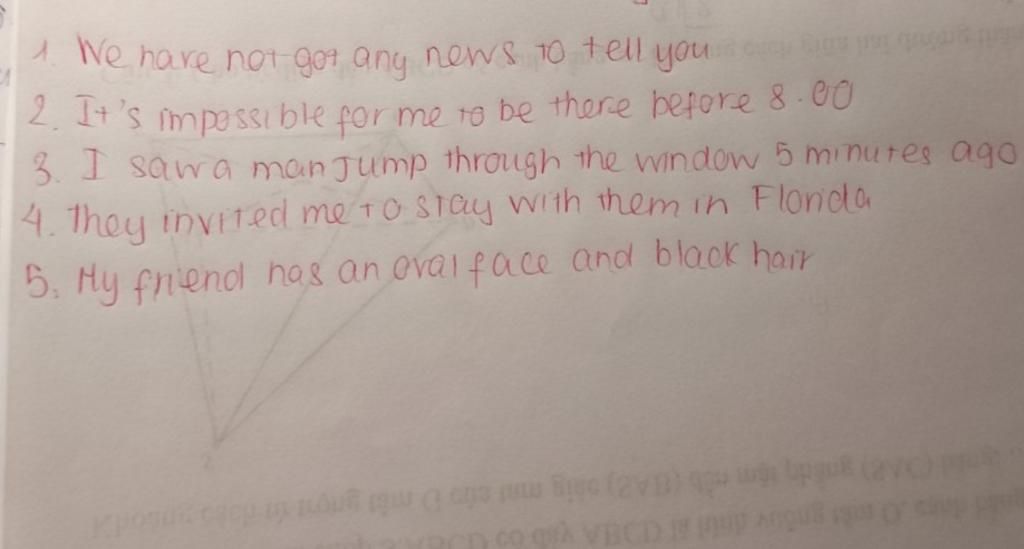 1. We have not got any news to tell you
2. It's impossible for me to be there before 8.00
3. I saw a man jump through the window 5 minutes ago
4. They invited me to stay with them in Florida
5. My friend has an oval face and black hair